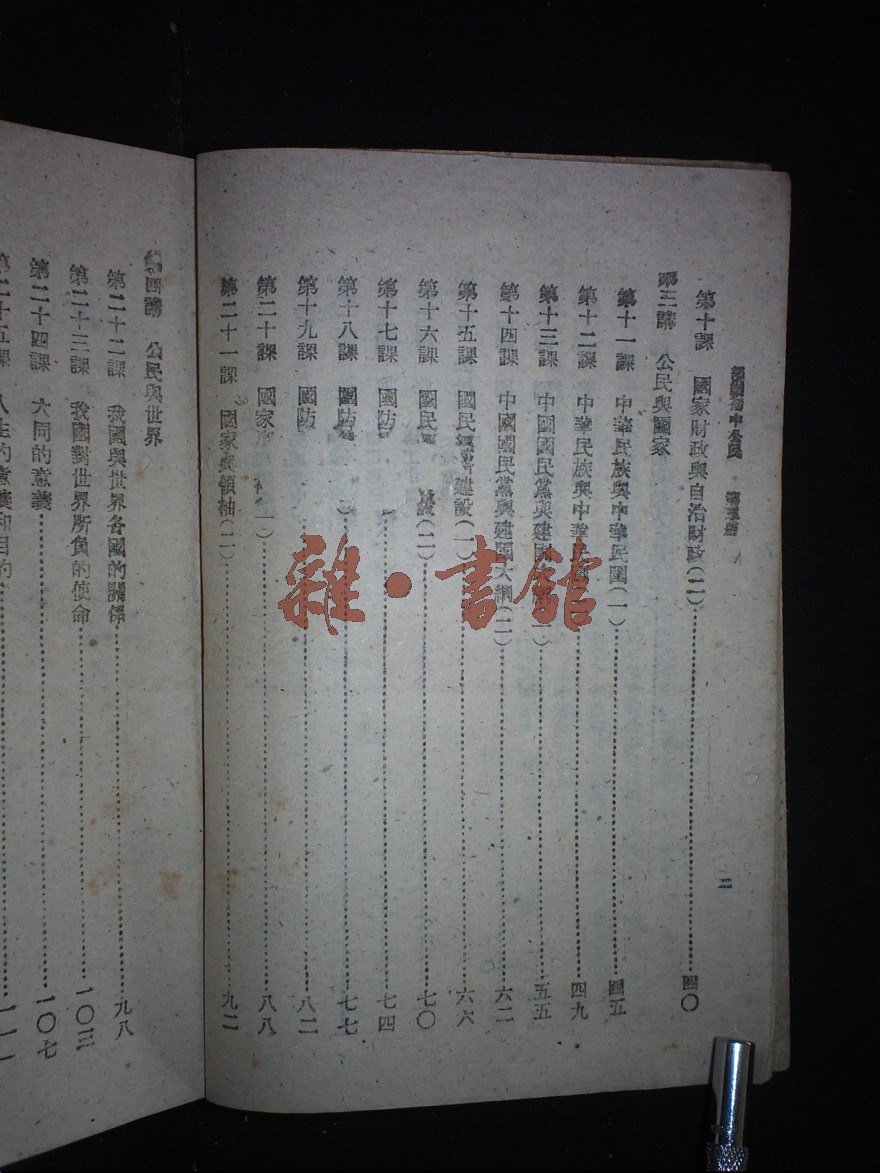 初中公民
二
第十課 國家財政與自治財政(二)……四〇
第三講 公民與國家
第十一課 中華民族與中華民國(一)……四五
第十二課 中華民族與中華民國……四九
第十三課 中國國民黨與建國……五五
第十四課 中國國民黨與建國大綱(二)……六二
第十五課 國民 建設(一)……六六
第十六課 國民 設(二)……七〇
第十七課 國防……七四
第十八課 國防……七七
第十九課 國防……八二
第二十課 國家……八八
第二十一課 國家與領袖(二)……九二
第四講 公民與世界
第二十二課 我國與世界各國的關係……九八
第二十三課 我國對世界所負的使命……一〇三
第二十四課 大同的意義……一〇七
第二十五課 人生的意義和目的……一一一
雜·書館